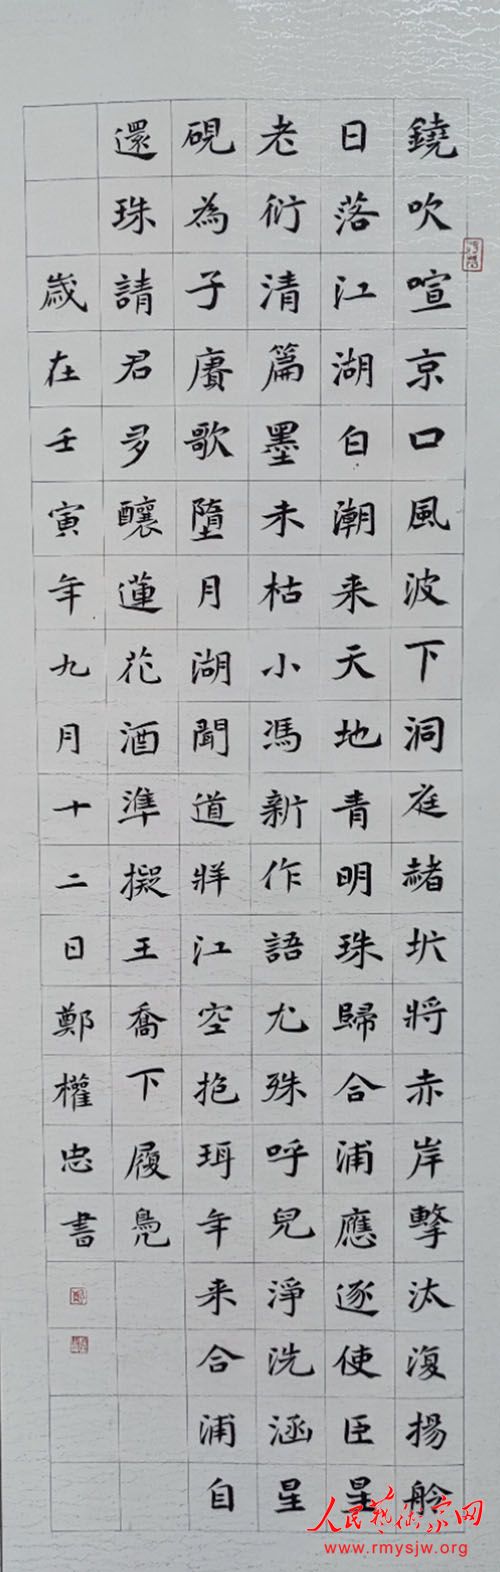 鐃吹喧京口風波下洞庭赭圻將赤岸擊汰復揚舲
日落江湖白潮来天地青明珠歸合浦應逐使臣星
老衍清篇墨未枯小馮新作語尤殊呼兒淨洗涵星
硯為子賡歌墮月湖聞道牂江空抱珥年来合浦自
還珠請君多釀蓮花酒準擬王喬下履鳧
歲在壬寅年九月十二日鄭權忠書
人民藝術家网
www.rmysjw.org